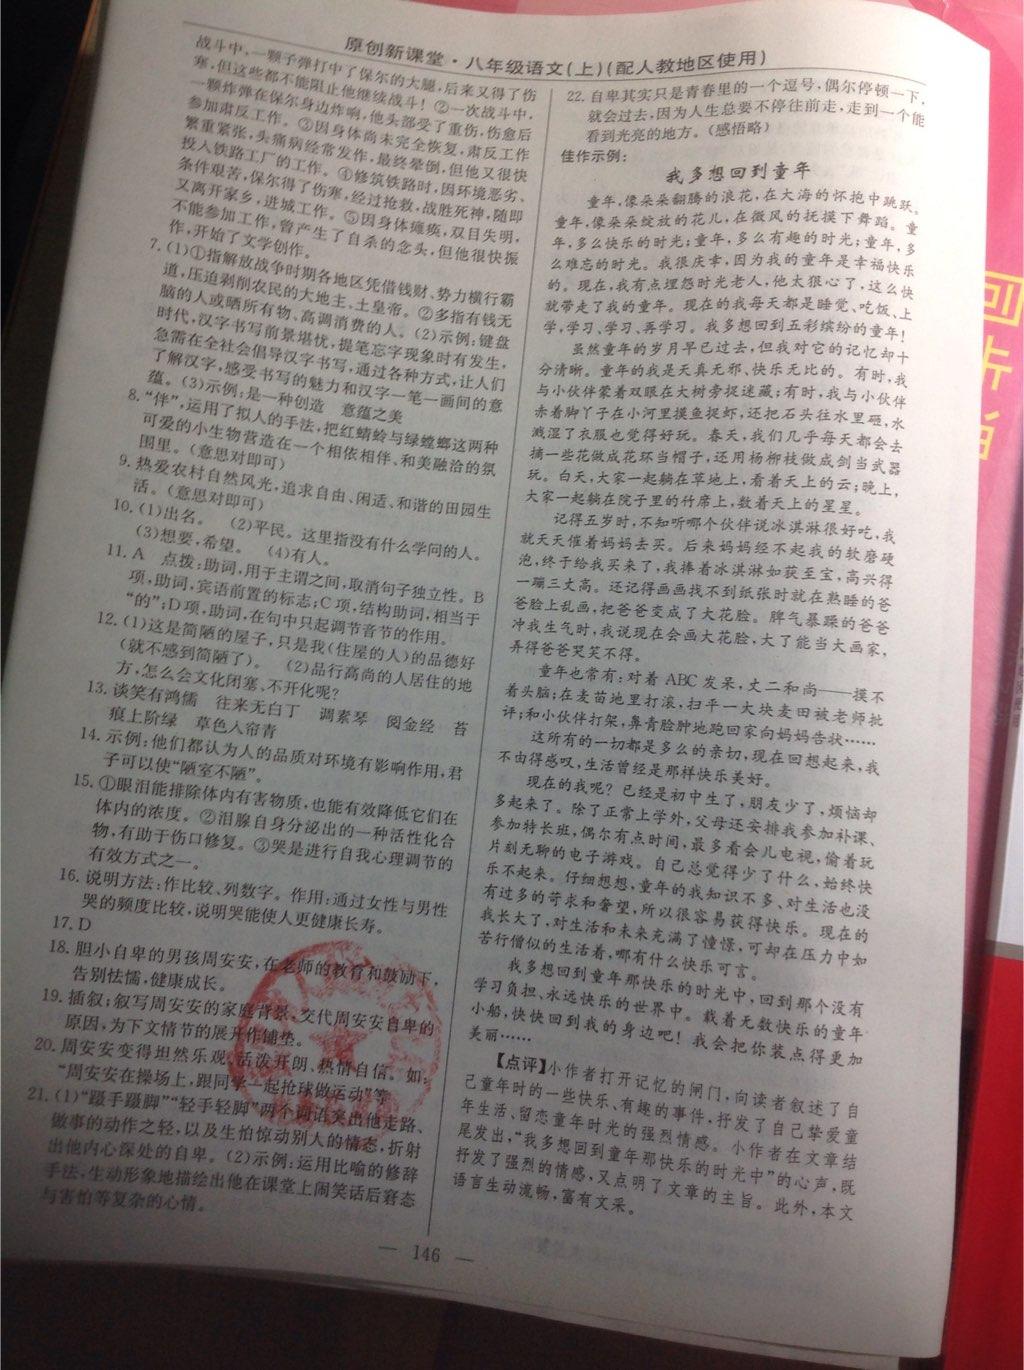 原创新课堂·八年级语文(上)(配人教地区使用)
战斗中,一颗子弹打中了保尔的大腿,后来又得了伤
寒,但这些都不能阻止他继续战斗!②一次战斗中,
一颗炸弹在保尔身边炸响,他头部受了重伤,伤愈后
参加肃反工作。③因身体尚未完全恢复,肃反工作
繁重紧张,头痛病经常发作,最终晕倒,但他又很快
投入铁路工厂的工作。④修筑铁路时,因环境恶劣、
条件艰苦,保尔得了伤寒,经过抢救,战胜死神,随即
又离开家乡,进城工作。⑤因身体瘫痪,双目失明,
不能参加工作,曾产生了自杀的念头,但他很快振
作,开始了文学创作。
7.(1)①指解放战争时期各地区凭借钱财、势力横行霸
道,压迫剥削农民的大地主、土皇帝。②多指有钱无
脑的人或晒所有物、高调消费的人。(2)示例:键盘
时代,汉字书写前景堪忧,提笔忘字现象时有发生,
急需在全社会倡导汉字书写,通过各种方式,让人们
了解汉字,感受书写的魅力和汉字一笔一画间的意
蕴。(3)示例:是一种创造 意蕴之美
8.“伴”,运用了拟人的手法,把红蜻蛉与绿螳螂这两种
可爱的小生物营造在一个相依相伴、和美融洽的氛
围里。(意思对即可)
9.热爱农村自然风光,追求自由、闲适、和谐的田园生
活。(意思对即可)
10.(1)出名。 (2)平民。这里指没有什么学问的人。
(3)想要,希望。 (4)有人。
11.A 点拨:助词,用于主谓之间,取消句子独立性。B
项,助词,宾语前置的标志;C项,结构助词,相当于
“的”;D项,助词,在句中只起调节音节的作用。
12.(1)这是简陋的屋子,只是我(住屋的人)的品德好
(就不感到简陋了)。 (2)品行高尚的人居住的地
方,怎么会文化闭塞、不开化呢?
13.谈笑有鸿儒 往来无白丁 调素琴 阅金经 苔
痕上阶绿 草色入帘青
14.示例:他们都认为人的品质对环境有影响作用,君
子可以使“陋室不陋”。
15.①眼泪能排除体内有害物质,也能有效降低它们在
体内的浓度。②泪腺自身分泌出的一种活性化合
物,有助于伤口修复。③哭是进行自我心理调节的
有效方式之一。
16.说明方法:作比较、列数字。作用:通过女性与男性
哭的频度比较,说明哭能使人更健康长寿。
17.D
18.胆小自卑的男孩周安安,在老师的教育和鼓励下,
告别怯懦,健康成长。
19.插叙;叙写周安安的家庭背景,交代周安安自卑的
原因,为下文情节的展开作铺垫。
20.周安安变得坦然乐观、活泼开朗、热情自信。如:
“周安安在操场上,跟同学一起抢球做运动”等
21.(1)“蹑手蹑脚”“轻手轻脚”两个词语突出他走路、
做事的动作之轻,以及生怕惊动别人的情态,折射
出他内心深处的自卑。(2)示例:运用比喻的修辞
手法,生动形象地描绘出他在课堂上闹笑话后窘态
与害怕等复杂的心情。
22.自卑其实只是青春里的一个逗号,偶尔停顿一下,
就会过去,因为人生总要不停往前走,走到一个能
看到光亮的地方。(感悟略)
佳作示例:
我多想回到童年
童年,像朵朵翻腾的浪花,在大海的怀抱中跳跃。
童年,像朵朵绽放的花儿,在微风的抚摸下舞蹈。童
年,多么快乐的时光;童年,多么有趣的时光;童年,多
么难忘的时光。我很庆幸,因为我的童年是幸福快乐
的。现在,我有点埋怨时光老人,他太狠心了,这么快
就带走了我的童年。现在的我每天都是睡觉、吃饭、上
学,学习、学习、再学习。我多想回到五彩缤纷的童年!
虽然童年的岁月早已过去,但我对它的记忆却十
分清晰。童年的我是天真无邪、快乐无比的。有时,我
与小伙伴蒙着双眼在大树旁捉迷藏;有时,我与小伙伴
赤着脚丫子在小河里摸鱼捉虾,还把石头往水里砸,水
溅湿了衣服也觉得好玩。春天,我们几乎每天都会去
摘一些花做成花环当帽子,还用杨柳枝做成剑当武器
玩。白天,大家一起躺在草地上,看着天上的云;晚上,
大家一起躺在院子里的竹席上,数着天上的星星。
记得五岁时,不知听哪个伙伴说冰淇淋很好吃,我
就天天催着妈妈去买。后来妈妈经不起我的软磨硬
泡,终于给我买来了,我捧着冰淇淋如获至宝,高兴得
一蹦三丈高。还记得画画找不到纸张时就在熟睡的爸
爸脸上乱画,把爸爸变成了大花脸。脾气暴躁的爸爸
冲我生气时,我说现在会画大花脸,大了能当大画家,
弄得爸爸哭笑不得。
童年也常有:对着ABC发呆,丈二和尚——摸不
着头脑;在麦苗地里打滚,扫平一大块麦田被老师批
评;和小伙伴打架,鼻青脸肿地跑回家向妈妈告状……
这所有的一切都是多么的亲切,现在回想起来,我
不由得感叹,生活曾经是那样快乐美好。
现在的我呢?已经是初中生了,朋友少了,烦恼却
多起来了。除了正常上学外,父母还安排我参加补课、
参加特长班,偶尔有点时间,最多看会儿电视,偷着玩
片刻无聊的电子游戏。自己总觉得少了什么,始终快
乐不起来。仔细想想,童年的我知识不多、对生活也没
有过多的苛求和奢望,所以很容易获得快乐。现在的
我长大了,对生活和未来充满了憧憬,可却在压力中如
苦行僧似的生活着,哪有什么快乐可言。
我多想回到童年那快乐的时光中,回到那个没有
学习负担、永远快乐的世界中。载着无数快乐的童年
小船,快快回到我的身边吧!我会把你装点得更加
美丽……
【点评】小作者打开记忆的闸门,向读者叙述了自
己童年时的一些快乐、有趣的事件,抒发了自己挚爱童
年生活、留恋童年时光的强烈情感。小作者在文章结
尾发出,“我多想回到童年那快乐的时光中”的心声,既
抒发了强烈的情感,又点明了文章的主旨。此外,本文
语言生动流畅,富有文采。
— 146 —